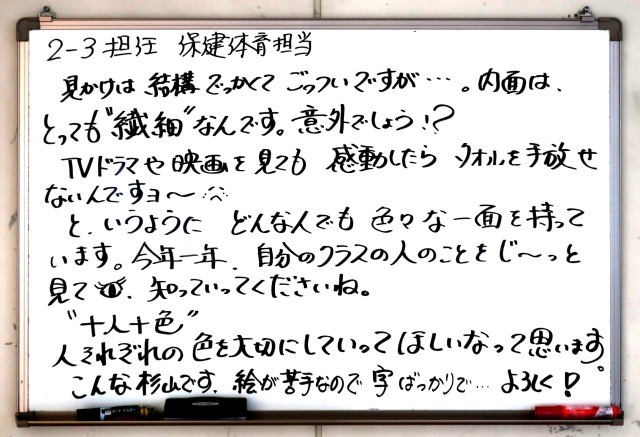 2-3担任 保健体育担当
見かけは 結構でっかくて ごっついですが…。内面は、
とっても"繊細"なんです。意外でしょう!?
TVドラマや映画を見ても 感動したら タオルを手放せ
ないんですョ〜
と、いうように どんな人でも 色々な一面を持って
います。今年一年、自分のクラスの人のことをじ〜っと
見て、知っていってくださいね。
"十人十色"
人それぞれの色を大切にしていってほしいなって思います。
こんな杉山です。絵が苦手なので字ばっかりで… よろしく!